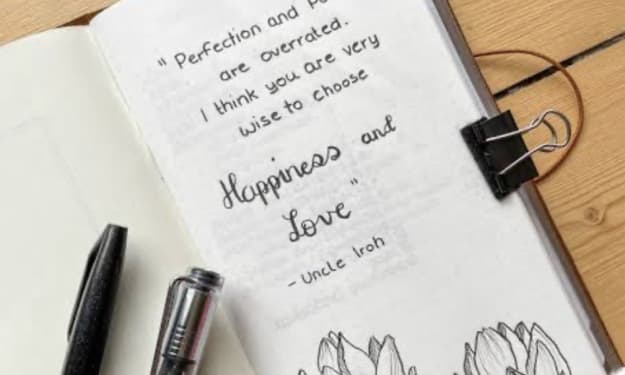 " Perfection and
are overrated.
I think you are very
wise to choose
Happiness and
Love"
- Uncle Iroh